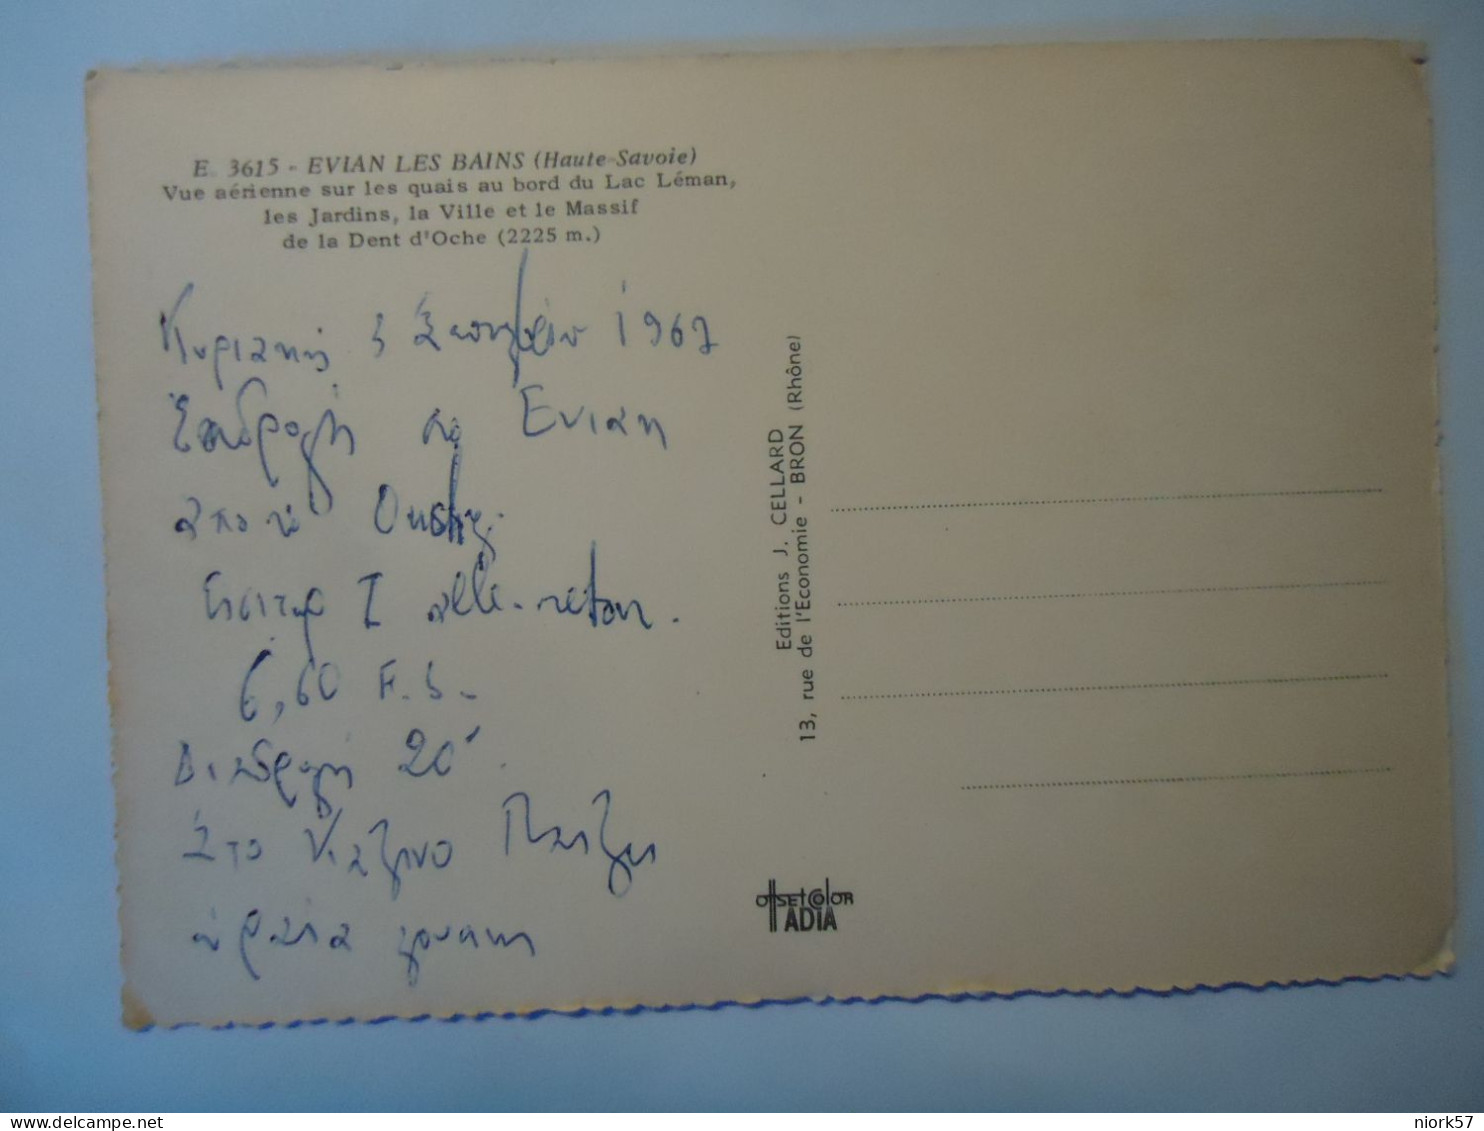 E. 3615 - EVIAN LES BAINS (Haute-Savoie)
Vue aérienne sur les quais au bord du Lac Léman,
les Jardins, la Ville et le Massif
de la Dent d'Oche (2225 m.)
Κυριακή 3 Σεπτεμβρίου 1967
Εκδρομή στο
από το Ouchy.
I aller-retour.
6,60 F.S.
Διαδρομή 20'.
Στο
ωραία γυναίκα
Editions J. CELLARD
13, rue de l'Economie - BRON (Rhône)
OFFSETCOLOR
ADIA
niork57